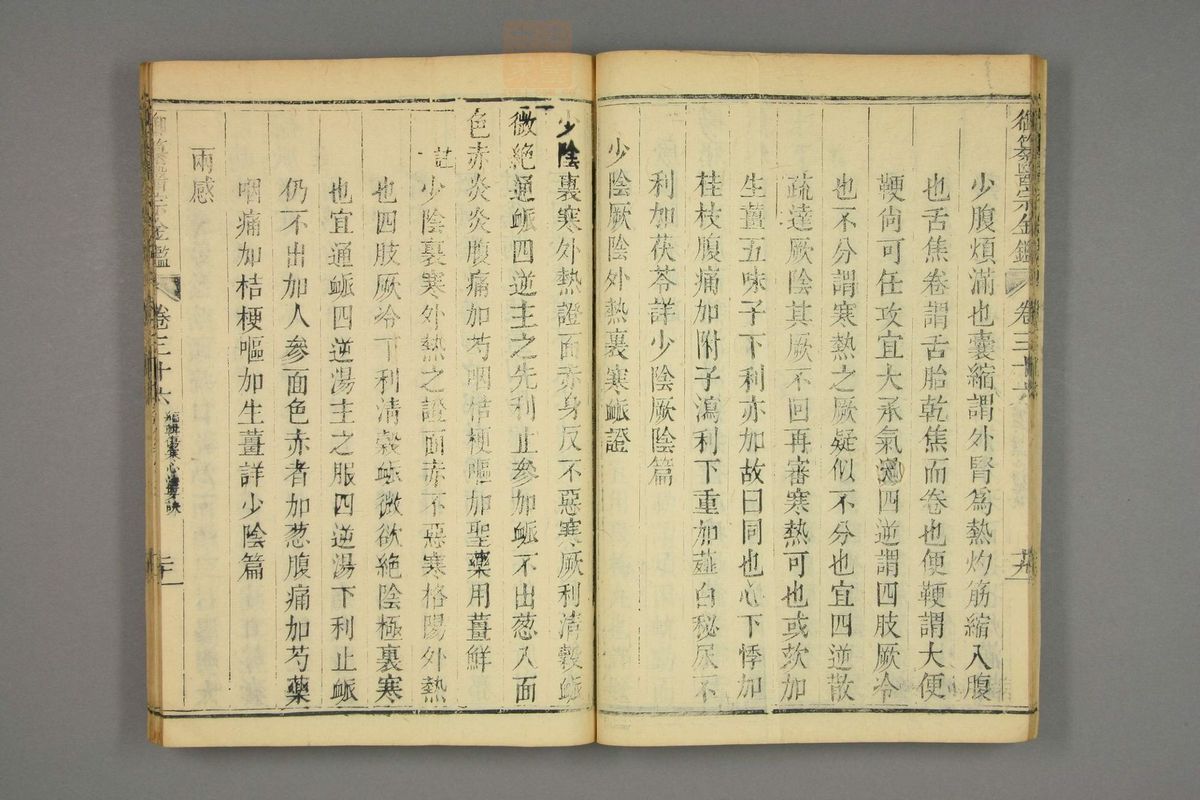 御纂醫宗金鑑 卷三十六
少腹煩滿也囊縮謂外腎爲熱灼筋縮入腹
也舌焦卷謂舌胎乾焦而卷也便鞕謂大便
鞕尚可任攻宜大承氣湯四逆謂四肢厥冷
也不分謂寒熱之厥疑似不分也宜四逆散
疏達厥陰其厥不回再審寒熱可也或欬加
生薑五味子下利亦加故曰同也心下悸加
桂枝腹痛加附子瀉利下重加薤白秘尿不
利加茯苓詳少陰厥陰篇
少陰厥陰外熱裏寒衇證
少陰裏寒外熱證面赤身反不惡寒厥利清穀衇
微絶通衇四逆主之先利止參加衇不出葱入面
色赤炎炎腹痛加芍咽桔梗嘔加聖藥用薑鮮
註少陰裏寒外熱之證面赤不惡寒格陽外熱
也四肢厥冷下利清穀衇微欲絶陰極裏寒
也宜通衇四逆湯主之服四逆湯下利止衇
仍不出加人參面色赤者加葱腹痛加芍藥
咽痛加桔梗嘔加生薑詳少陰篇
兩感
御纂醫宗金鑑 卷三十六 編輯傷寒心法要訣 二十